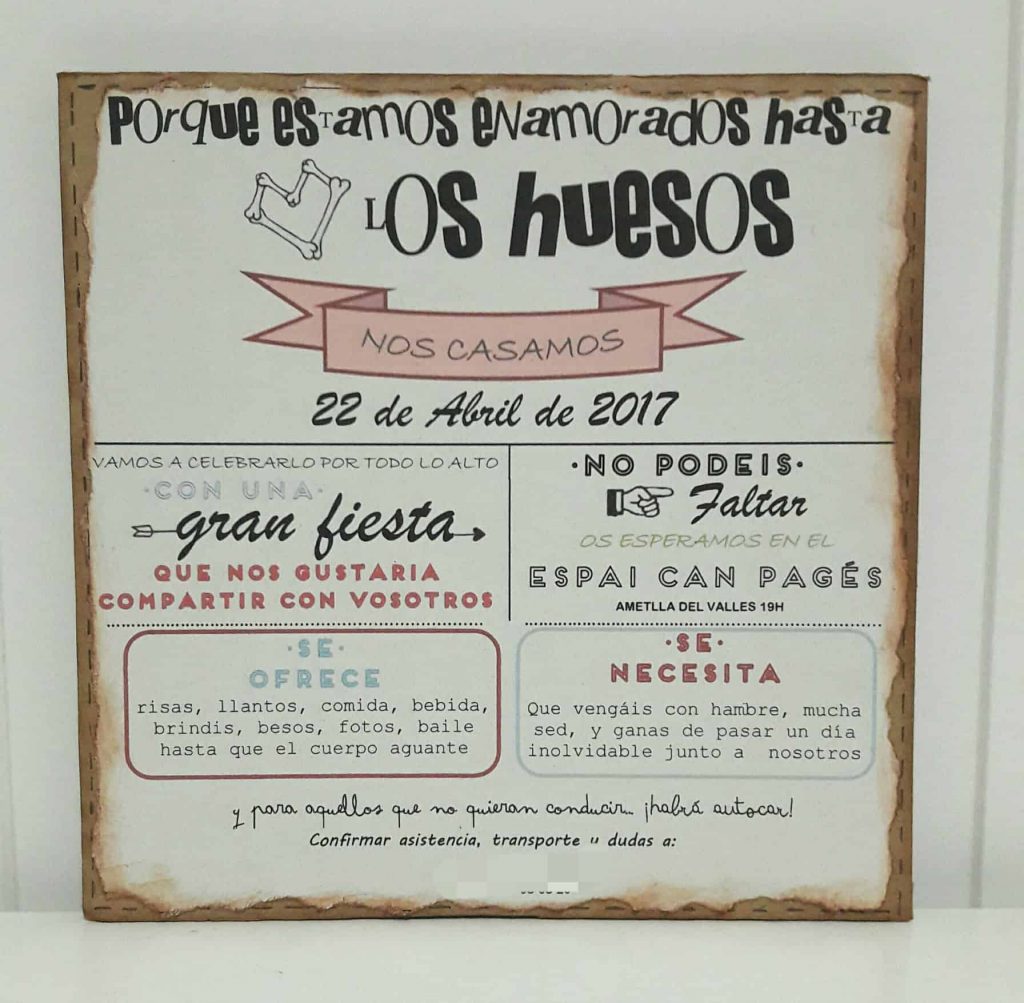 Porque estamos enamorados hasta
los huesos
NOS CASAMOS
22 de Abril de 2017
VAMOS A CELEBRARLO POR TODO LO ALTO
·CON UNA·
gran fiesta
QUE NOS GUSTARIA
COMPARTIR CON VOSOTROS
·NO PODEIS·
Faltar
OS ESPERAMOS EN EL
ESPAI CAN PAGÉS
AMETLLA DEL VALLES 19H
·SE·
OFRECE
risas, llantos, comida, bebida,
brindis, besos, fotos, baile
hasta que el cuerpo aguante
·SE·
NECESITA
Que vengáis con hambre, mucha
sed, y ganas de pasar un día
inolvidable junto a nosotros
y para aquellos que no quieran conducir... ¡habrá autocar!
Confirmar asistencia, transporte u dudas a: